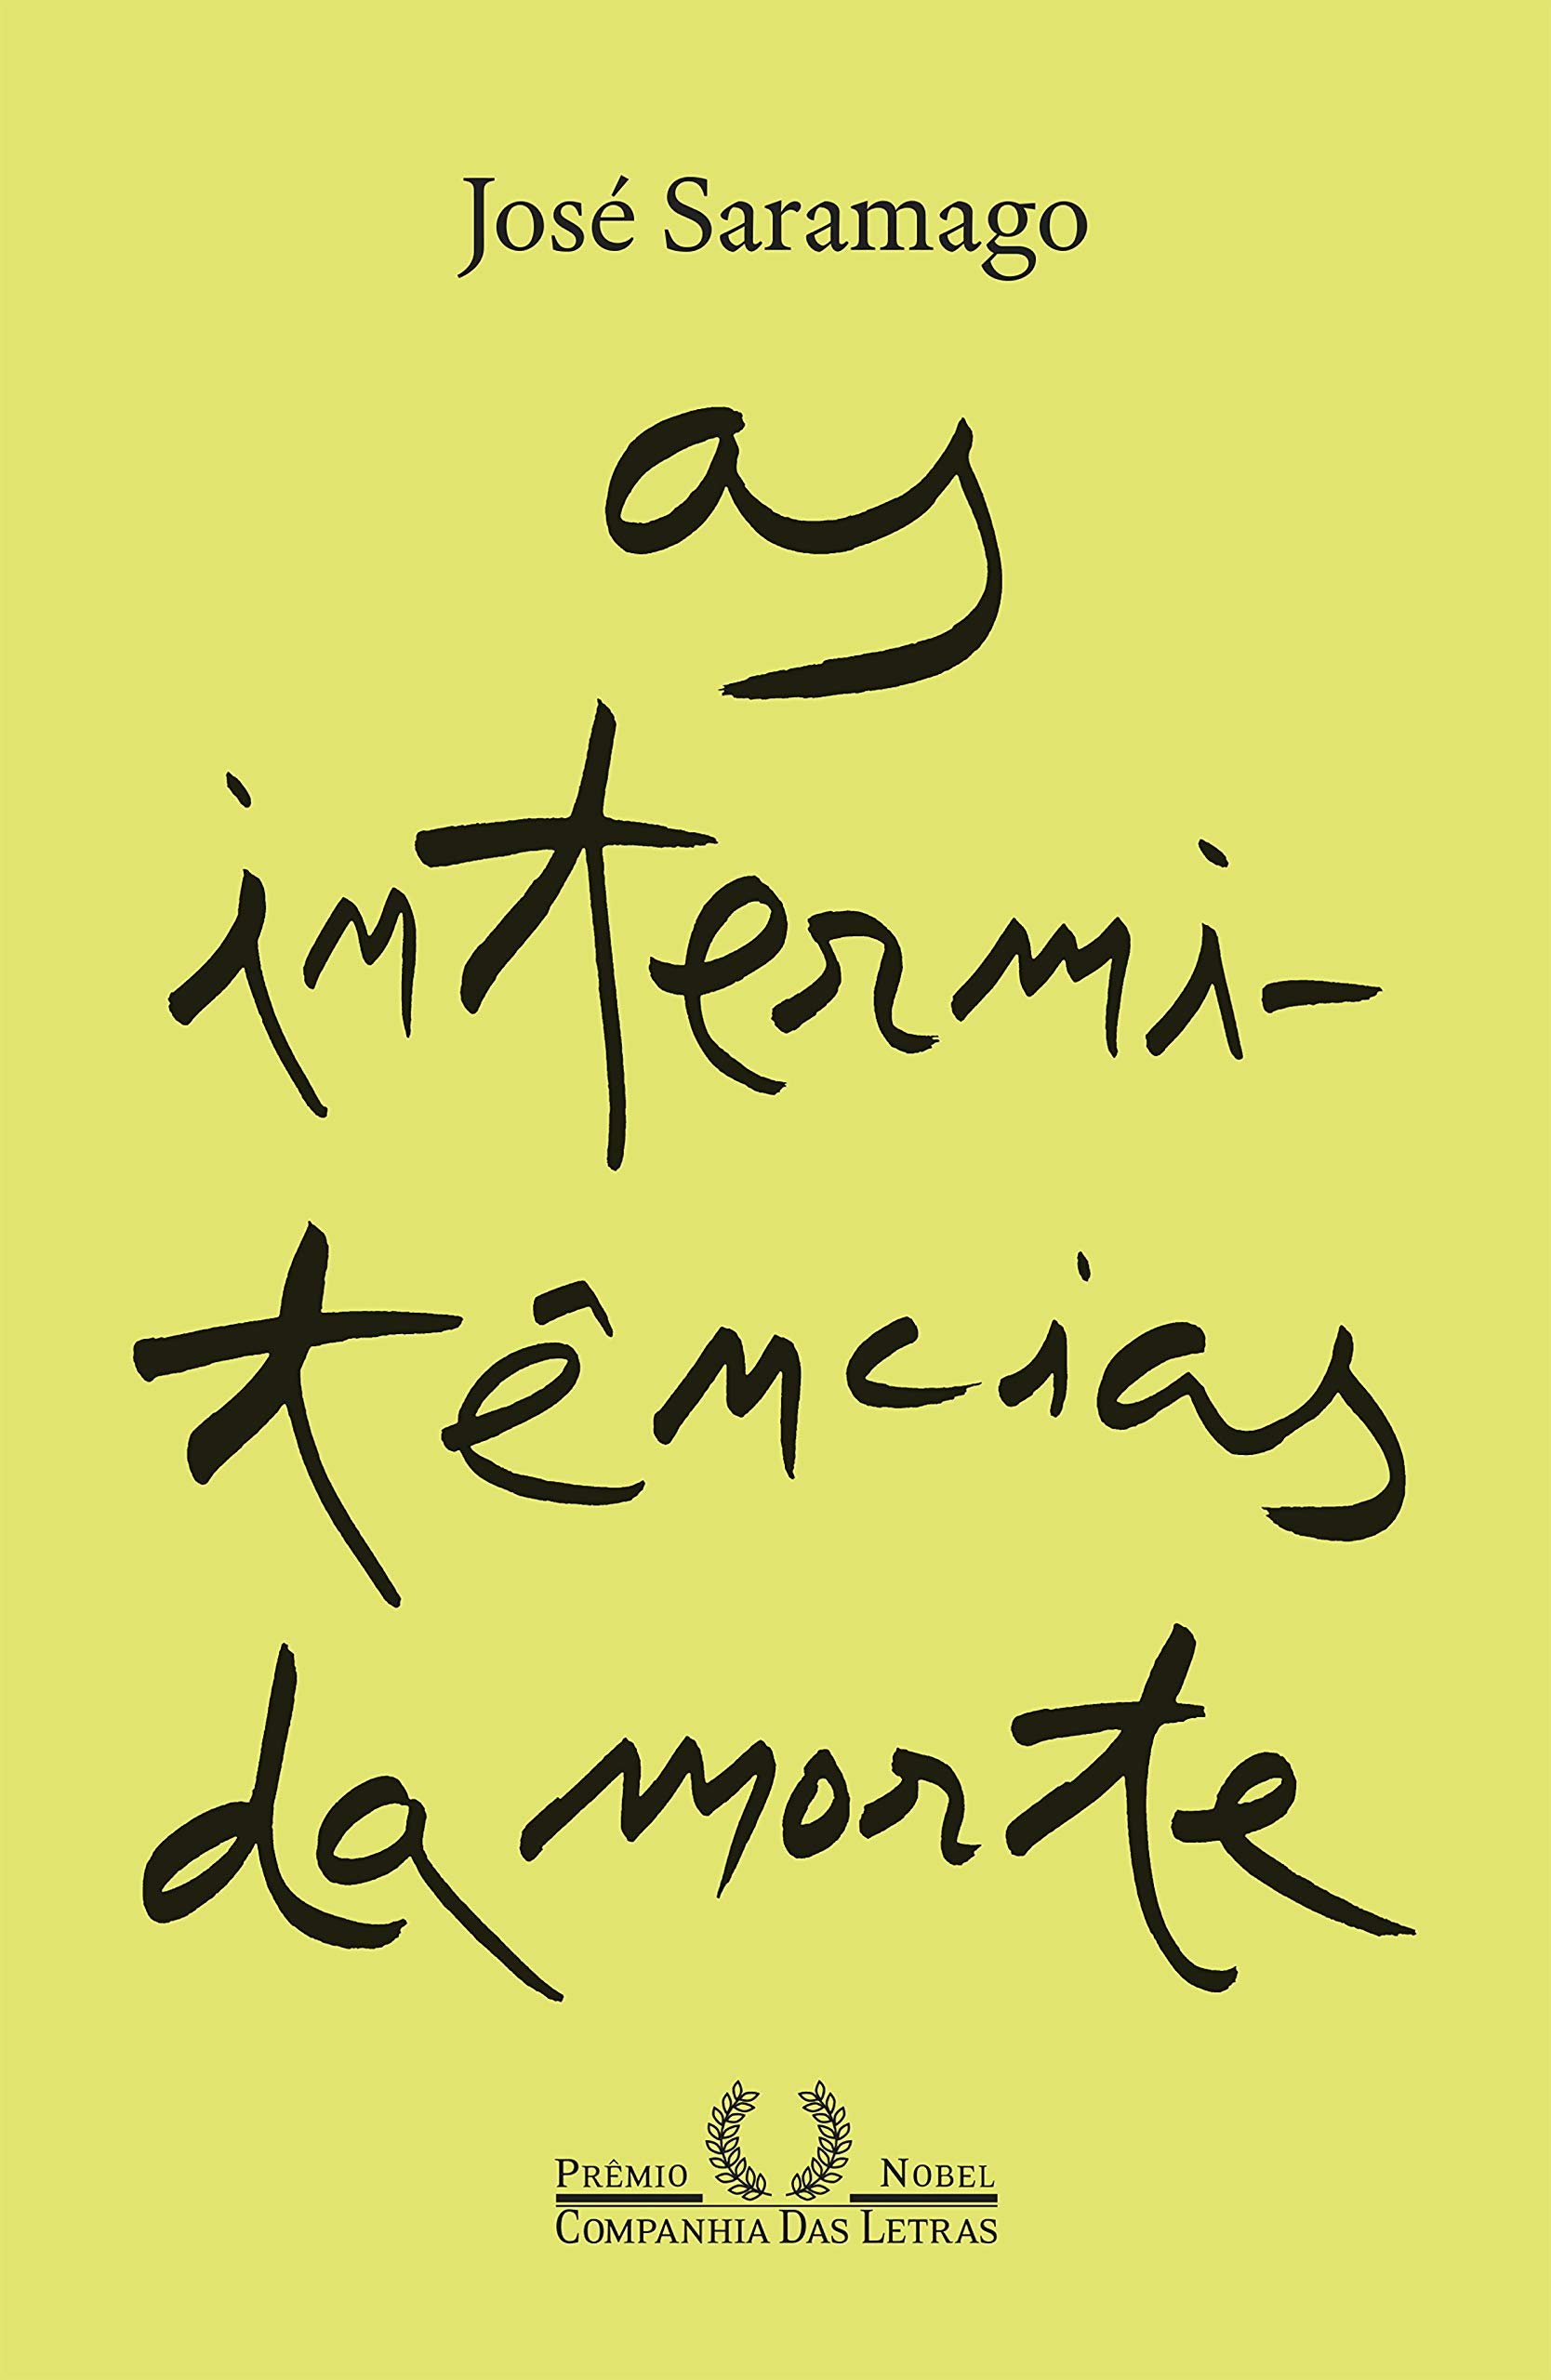 José Saramago
as
intermi-
tências
da morte
PRÊMIO NOBEL
COMPANHIA DAS LETRAS